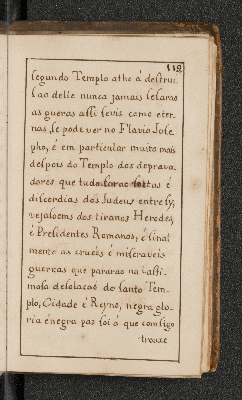 119
segundo Templo athe á destrui-
sao delle nunca jamais sesarão
as gueras assi sevis como exter-
nas, se pode ver no Flavio Jose
pho, é em particular muito mais
despois do Templo dos deprava-
dores que tudo
discordias dos Judeus entre sy,
vejaloemos dos tiranos Herodes,
é Presidentes Romanos, é final
mente as crueis é miseraveis
guerras que pararão na lasti-
mosa desolacaõ do santo Tem-
plo, Cidade é Reyno, negra glo-
ria énegra paz foi á que comsigo
trouxe